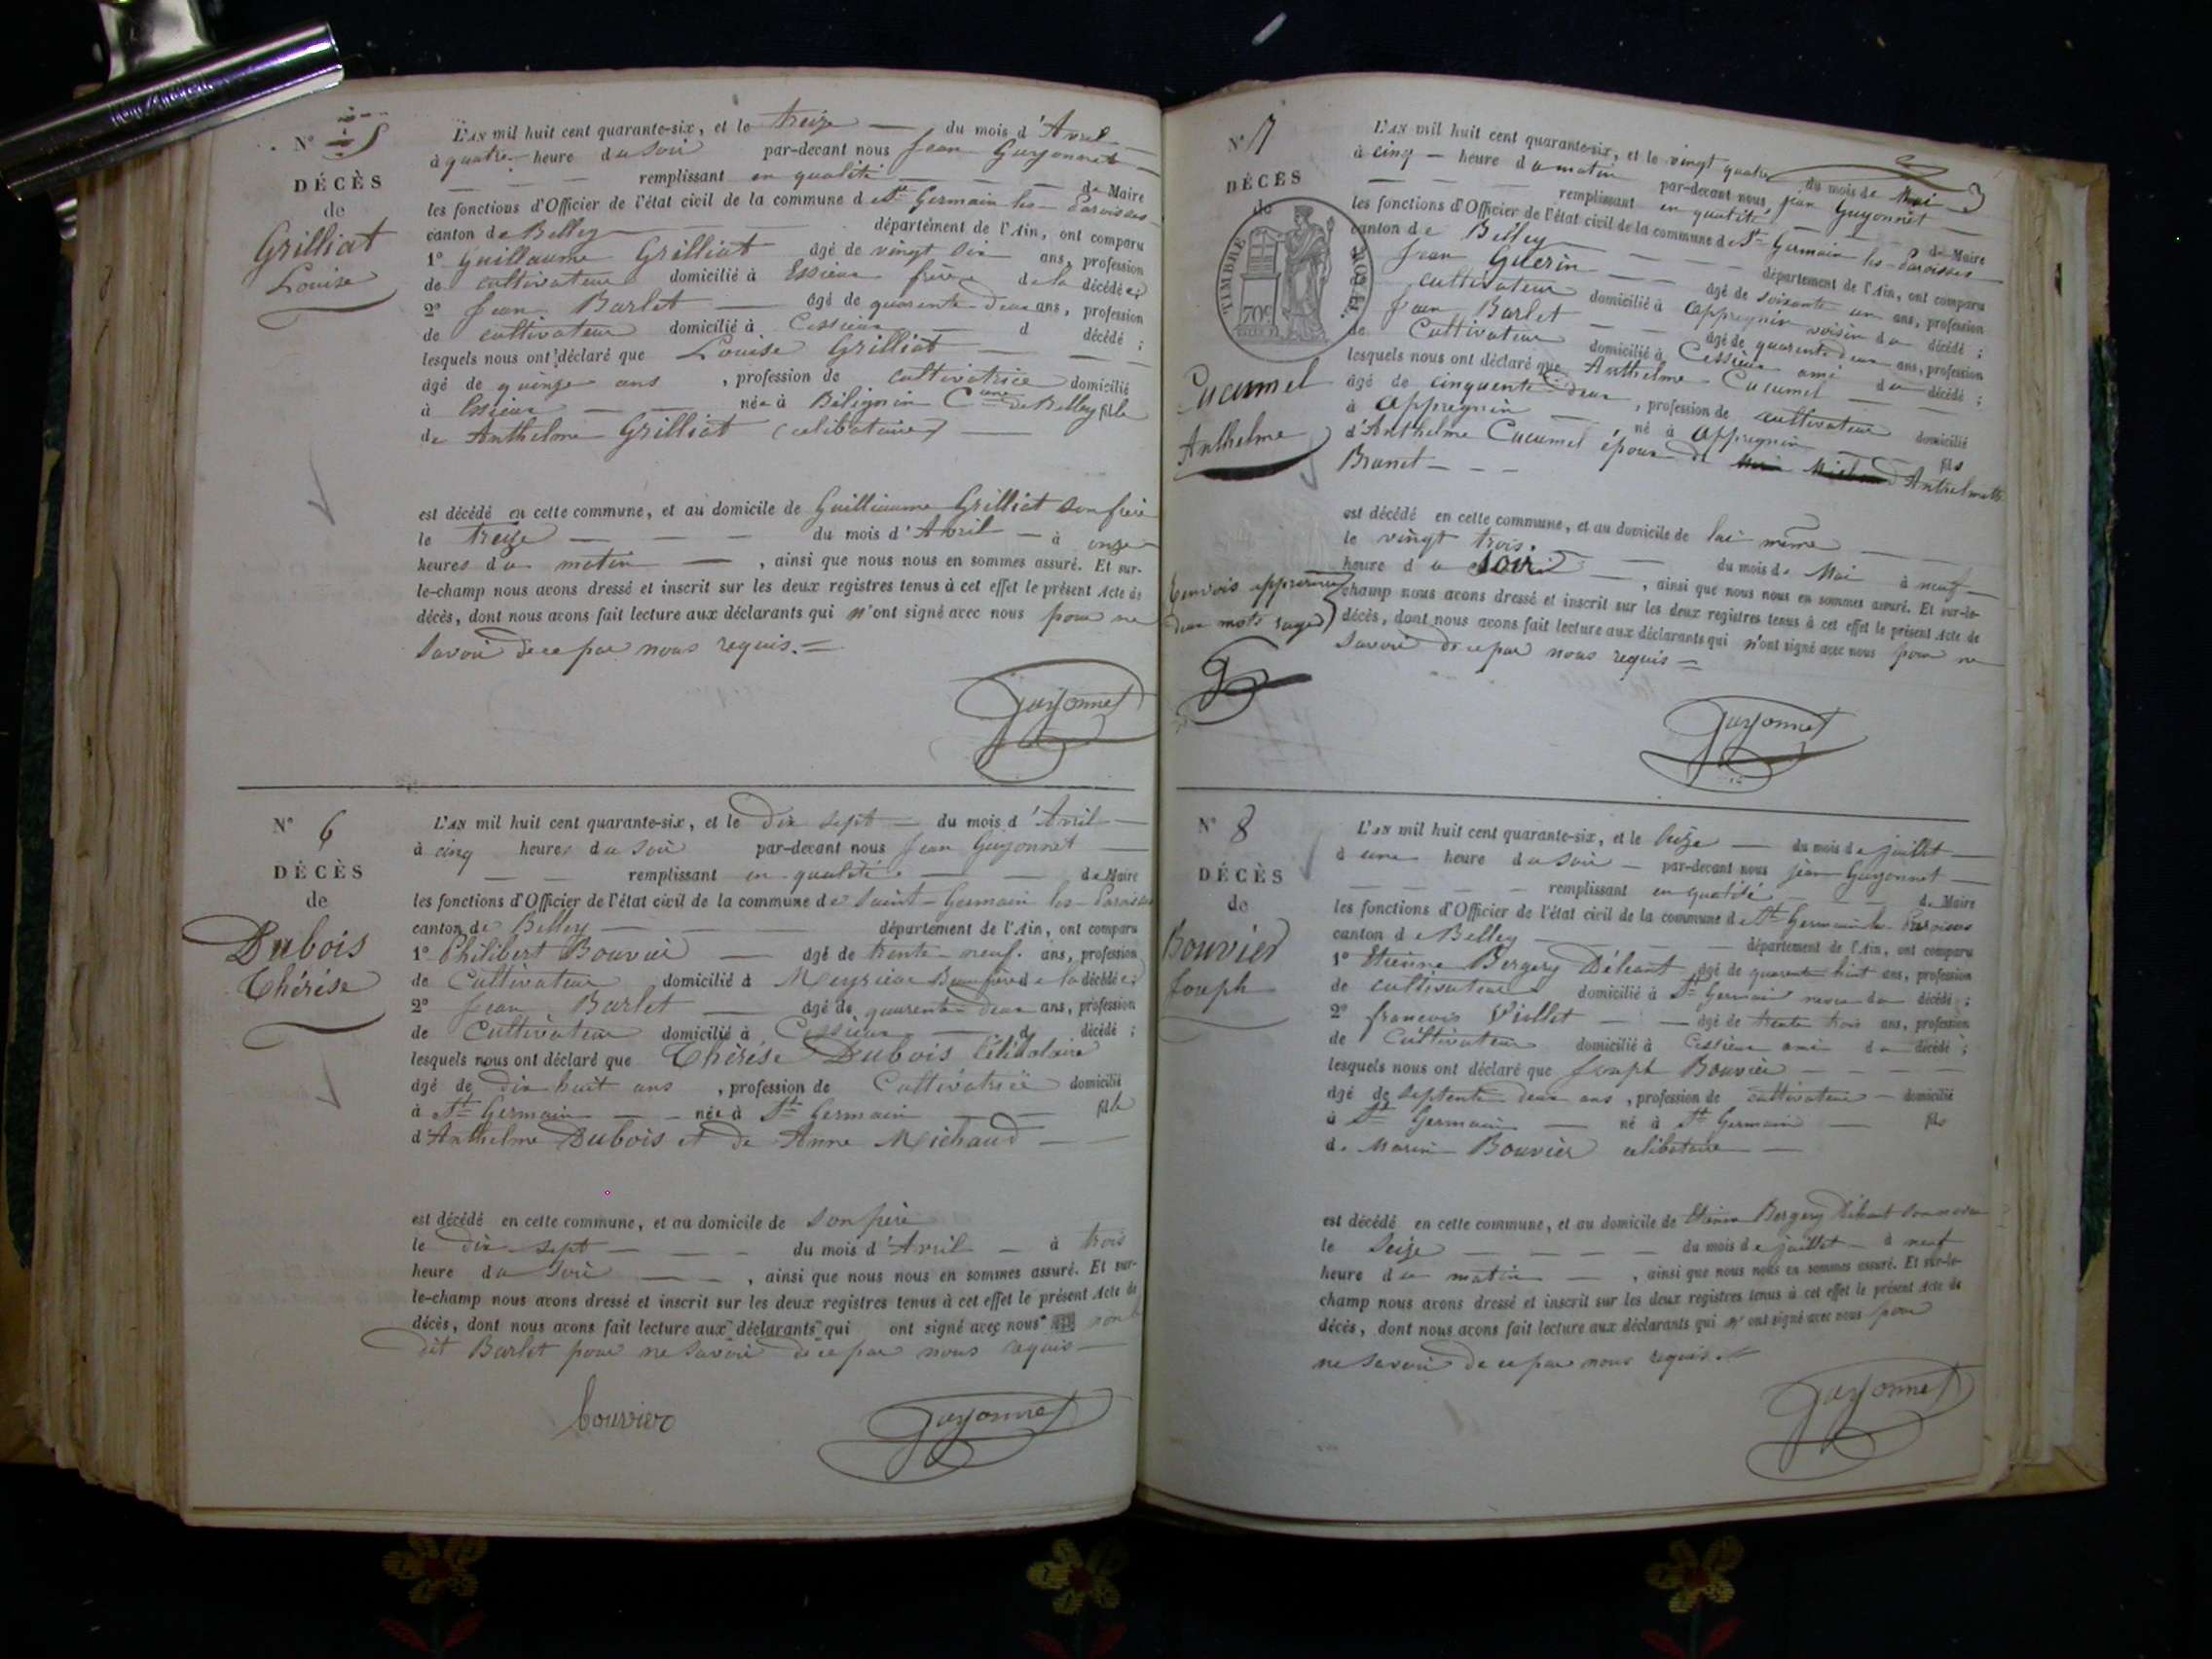 N° 5
DÉCÈS
de
Grilliat
Louise
L'AN mil huit cent quarante-six, et le treize — du mois d'Avril —
à quatre heure du Soir par-devant nous Jean Guyonnet
remplissant en qualité — de Maire
les fonctions d'Officier de l'état civil de la commune de St Germain les Paroisses
canton de Belley — département de l'Ain, ont comparu
1° Guillaume Grilliat âgé de vingt six ans, profession
de cultivateur domicilié à Essieux frère de la décédée
2° Jean Barlet — âgé de quarente deux ans, profession
de cultivateur domicilié à Cessieux — d décédé ;
lesquels nous ont déclaré que Louise Grilliat —
âgé de quinze ans , profession de cultivatrice domicilié
à Essieux — née à Bélignin Cune de Belley fille
de Anthelme Grilliat (celibataire) —
est décédé en cette commune, et au domicile de Guilliaume Grilliat son frère
le treize — du mois d'Avril — à onze
heures du matin — , ainsi que nous nous en sommes assuré. Et sur-
le-champ nous avons dressé et inscrit sur les deux registres tenus à cet effet le présent Acte de
décès, dont nous avons fait lecture aux déclarants qui n'ont signé avec nous pour ne
Savoir de ce par nous requis. =
Guyonnet
N° 6
DÉCÈS
de
Dubois
Thérése
L'AN mil huit cent quarante-six, et le dix sept — du mois d'Avril —
à cinq heures du Soir par-devant nous Jean Guyonnet
remplissant en qualité — de Maire
les fonctions d'Officier de l'état civil de la commune de Saint Germain les Paroisses
canton de Belley — département de l'Ain, ont comparu
1° Philibert Bouvier — âgé de trente neuf ans, profession
de Cultivateur domicilié à Meyrieu Beaufrère de la décédée
2° Jean Barlet — âgé de quarente deux ans, profession
de Cultivateur domicilié à Cessieux — d décédé ;
lesquels nous ont déclaré que Thérése Dubois Célibataire
âgé de dix huit ans , profession de Cultivatrice domicilié
à St Germain — née à St Germain — fille
d'Anthelme Dubois et de Anne Michaud —
est décédé en cette commune, et au domicile de Son père
le dix sept — du mois d'Avril — à trois
heure du Soir — , ainsi que nous nous en sommes assuré. Et sur-
le-champ nous avons dressé et inscrit sur les deux registres tenus à cet effet le présent Acte de
décès, dont nous avons fait lecture aux déclarants qui ont signé avec nous non le
dit Barlet pour ne savoir de ce par nous requis —
bouvier
Guyonnet
N° 7
DÉCÈS
de
TIMBRE ROYAL.
70c
Cucumel
Anthelme
L'AN mil huit cent quarante-six, et le vingt quatre du mois de Mai
à cinq — heure du matin par-devant nous Jean Guyonnet
remplissant en qualité — de Maire
les fonctions d'Officier de l'état civil de la commune de St Germain les Paroisses
canton de Belley — département de l'Ain, ont comparu
Jean Guerin — âgé de soixante un ans, profession
cultivateur domicilié à appregnin voisin du décédé ;
Jean Barlet — âgé de quarente deux ans, profession
de Cultivateur domicilié à Cessieux ami du décédé ;
lesquels nous ont déclaré que Anthelme Cucumel —
âgé de cinquente deux , profession de cultivateur domicilié
à appregnin — né à appregnin — fils
d'Anthelme Cucumel époux de Anthelmette
Brunet —
est décédé en cette commune, et au domicile de lui même —
le vingt trois — du mois de Mai à neuf —
heure du soir — , ainsi que nous nous en sommes assuré. Et sur-le-
champ nous avons dressé et inscrit sur les deux registres tenus à cet effet le présent Acte de
décès, dont nous avons fait lecture aux déclarants qui n'ont signé avec nous pour ne
Savoir de ce par nous requis =
deux mots rayés
Guyonnet
N° 8
DÉCÈS
de
Bouvier
Joseph
L'AN mil huit cent quarante-six, et le seize — du mois de juillet —
à une heure du soir — par-devant nous jean Guyonnet —
remplissant en qualité — de Maire
les fonctions d'Officier de l'état civil de la commune de St Germain les Paroisses
canton de Belley — département de l'Ain, ont comparu
1° Etienne Bergery Déleant âgé de quarente huit ans, profession
de cultivateur domicilié à St Germain neveu du décédé ;
2° françois Viollet — âgé de trente trois ans, profession
de Cultivateur domicilié à Cessieux ami du décédé ;
lesquels nous ont déclaré que Joseph Bouvier —
âgé de septente deux ans , profession de cultivateur — domicilié
à St Germain — né à St Germain — fils
de Marin Bouvier celibataire —
est décédé en cette commune, et au domicile de Etienne Bergery Déleant son neveu
le Seize — du mois de juillet — à neuf
heure du matin — , ainsi que nous nous en sommes assuré. Et sur-le-
champ nous avons dressé et inscrit sur les deux registres tenus à cet effet le présent Acte de
décès, dont nous avons fait lecture aux déclarants qui n'ont signé avec nous pour
ne savoir de ce par nous requis.
Guyonnet